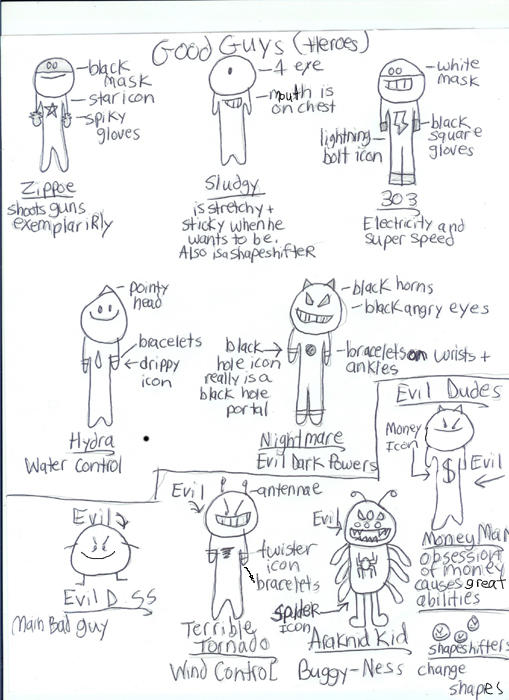 Good Guys (Heroes)
black
mask
star icon
spiky
gloves
Zippoe
shoots guns
exemplariRly
1 eye
mouth is
on chest
Sludgy
is stretchy +
sticky when he
wants to be.
Also is a shapeshifteR
white
mask
black
square
gloves
lightning
bolt icon
303
Electricity and
super speed
pointy
head
bracelets
drippy
icon
Hydra
Water Control
black horns
black angry eyes
black
hole icon
really is a
black hole
portal
bracelets on wrists +
ankles
Nightmare
Evil Dark Powers
Evil Dudes
Money
Icon
$
Evil
Money Man
obsession
of money
causes great
abilities
Evil
Evil D_SS
Main Bad guy
Evil
antennae
twister
icon
bracelets
Terrible
Tornado
Wind Control
Evil
spider
icon
Araknid Kid
Buggy-Ness
shapeshifters
change
shapes